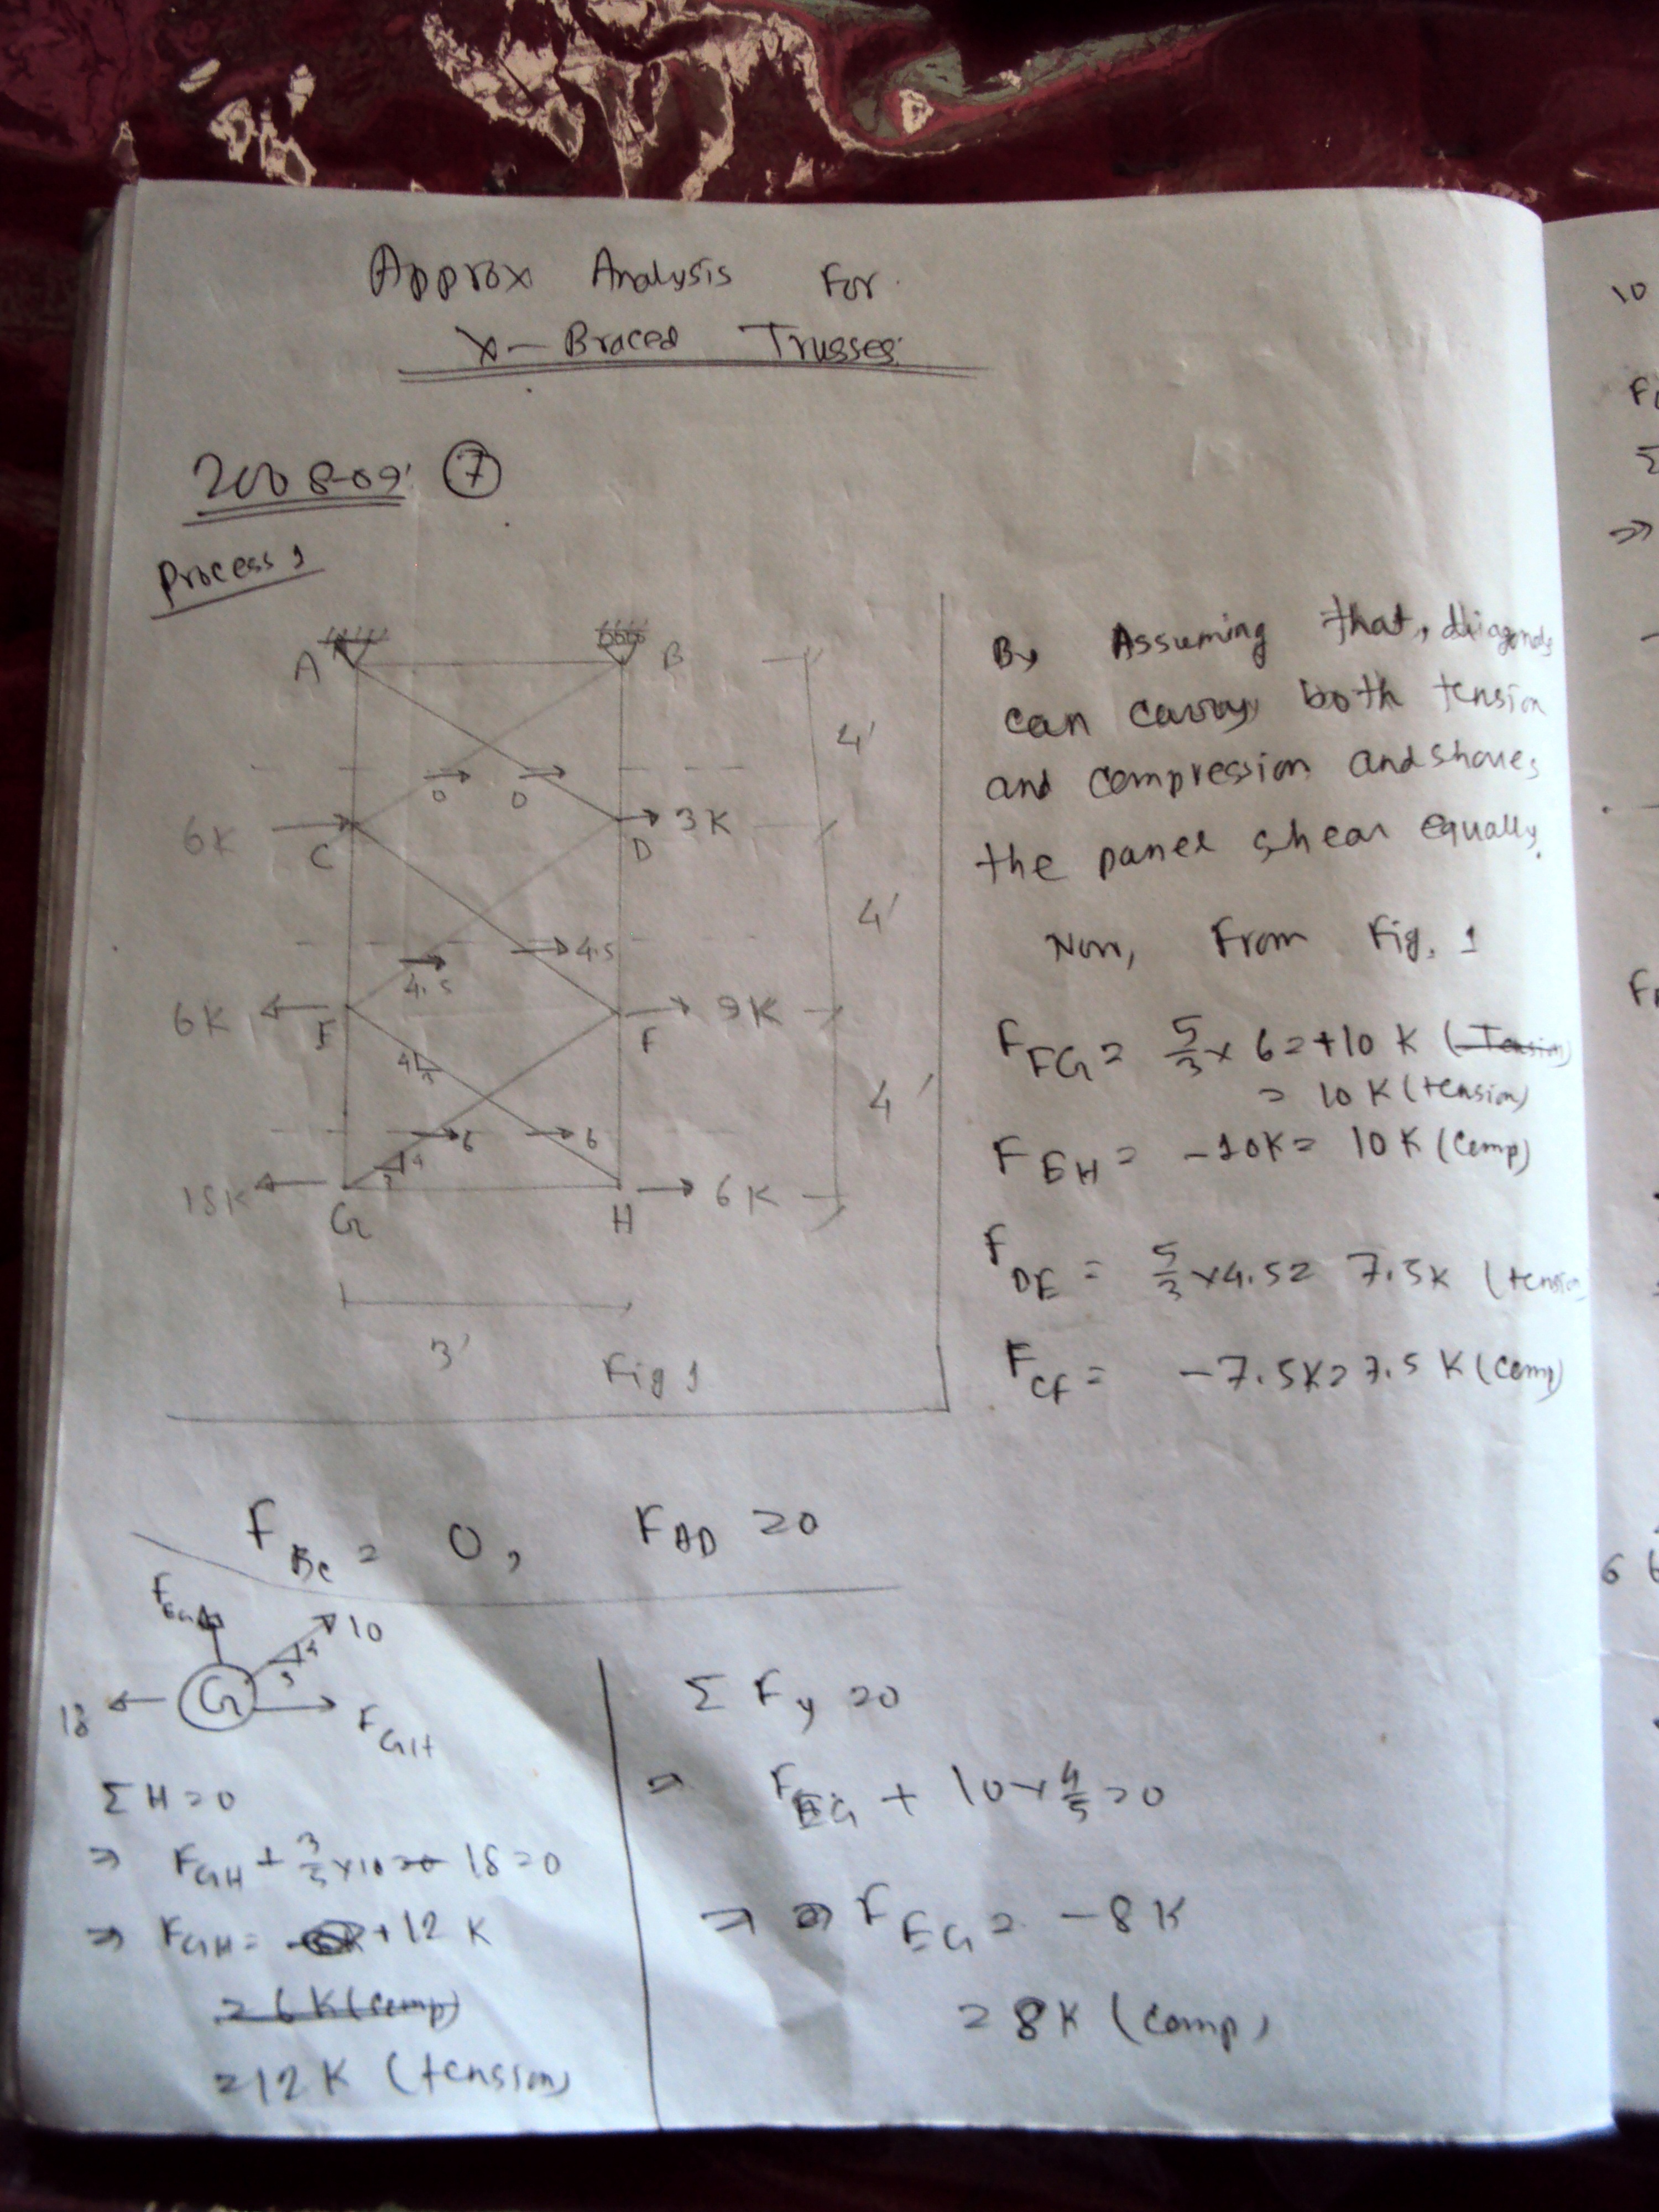 Approx Analysis For
X-Braced Trusses
2008-09' 7
Process 1
A B
4'
0 0
6K C D 3K
4'
4.5
4.5
6K E F 9K
4
4'
6 6
4
3
18K G H 6K
3'
Fig 1
By Assuming that, diagonals
can carry both tension
and compression and shares
the panel shear equally.
Now, From Fig. 1
F_FG = 5/3 × 6 = +10 K (Tension)
= 10 K (tension)
F_EH = -10K = 10 K (Comp)
F_DE = 5/3 × 4.5 = 7.5K (tension
F_CF = -7.5K = 7.5 K (Comp)
F_BC = 0, F_AD = 0
F_EG 10
4
3
18 G F_GH
ΣH = 0
⇒ F_GH + 3/5 × 10 - 18 = 0
⇒ F_GH = +12 K
= 6 K (comp)
= 12 K (tension)
ΣF_y = 0
⇒ F_EG + 10 × 4/5 = 0
⇒ F_EG = -8K
= 8K (comp)
10
Σ
⇒
6